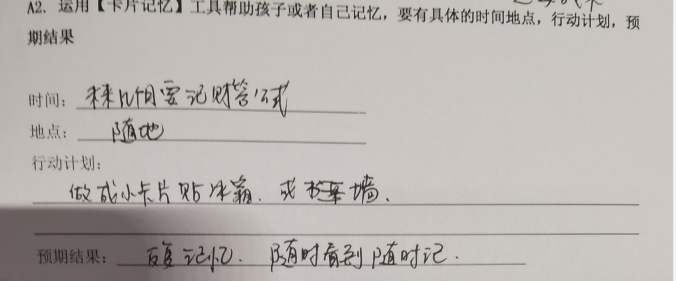 A2. 运用【卡片记忆】工具帮助孩子或者自己记忆，要有具体的时间地点，行动计划，预
期结果
时间：未来几个月要记财管公式
地点：随地
行动计划：
做成小卡片贴冰箱. 或书桌墙.
预期结果：反复记忆. 随时看到随时记.